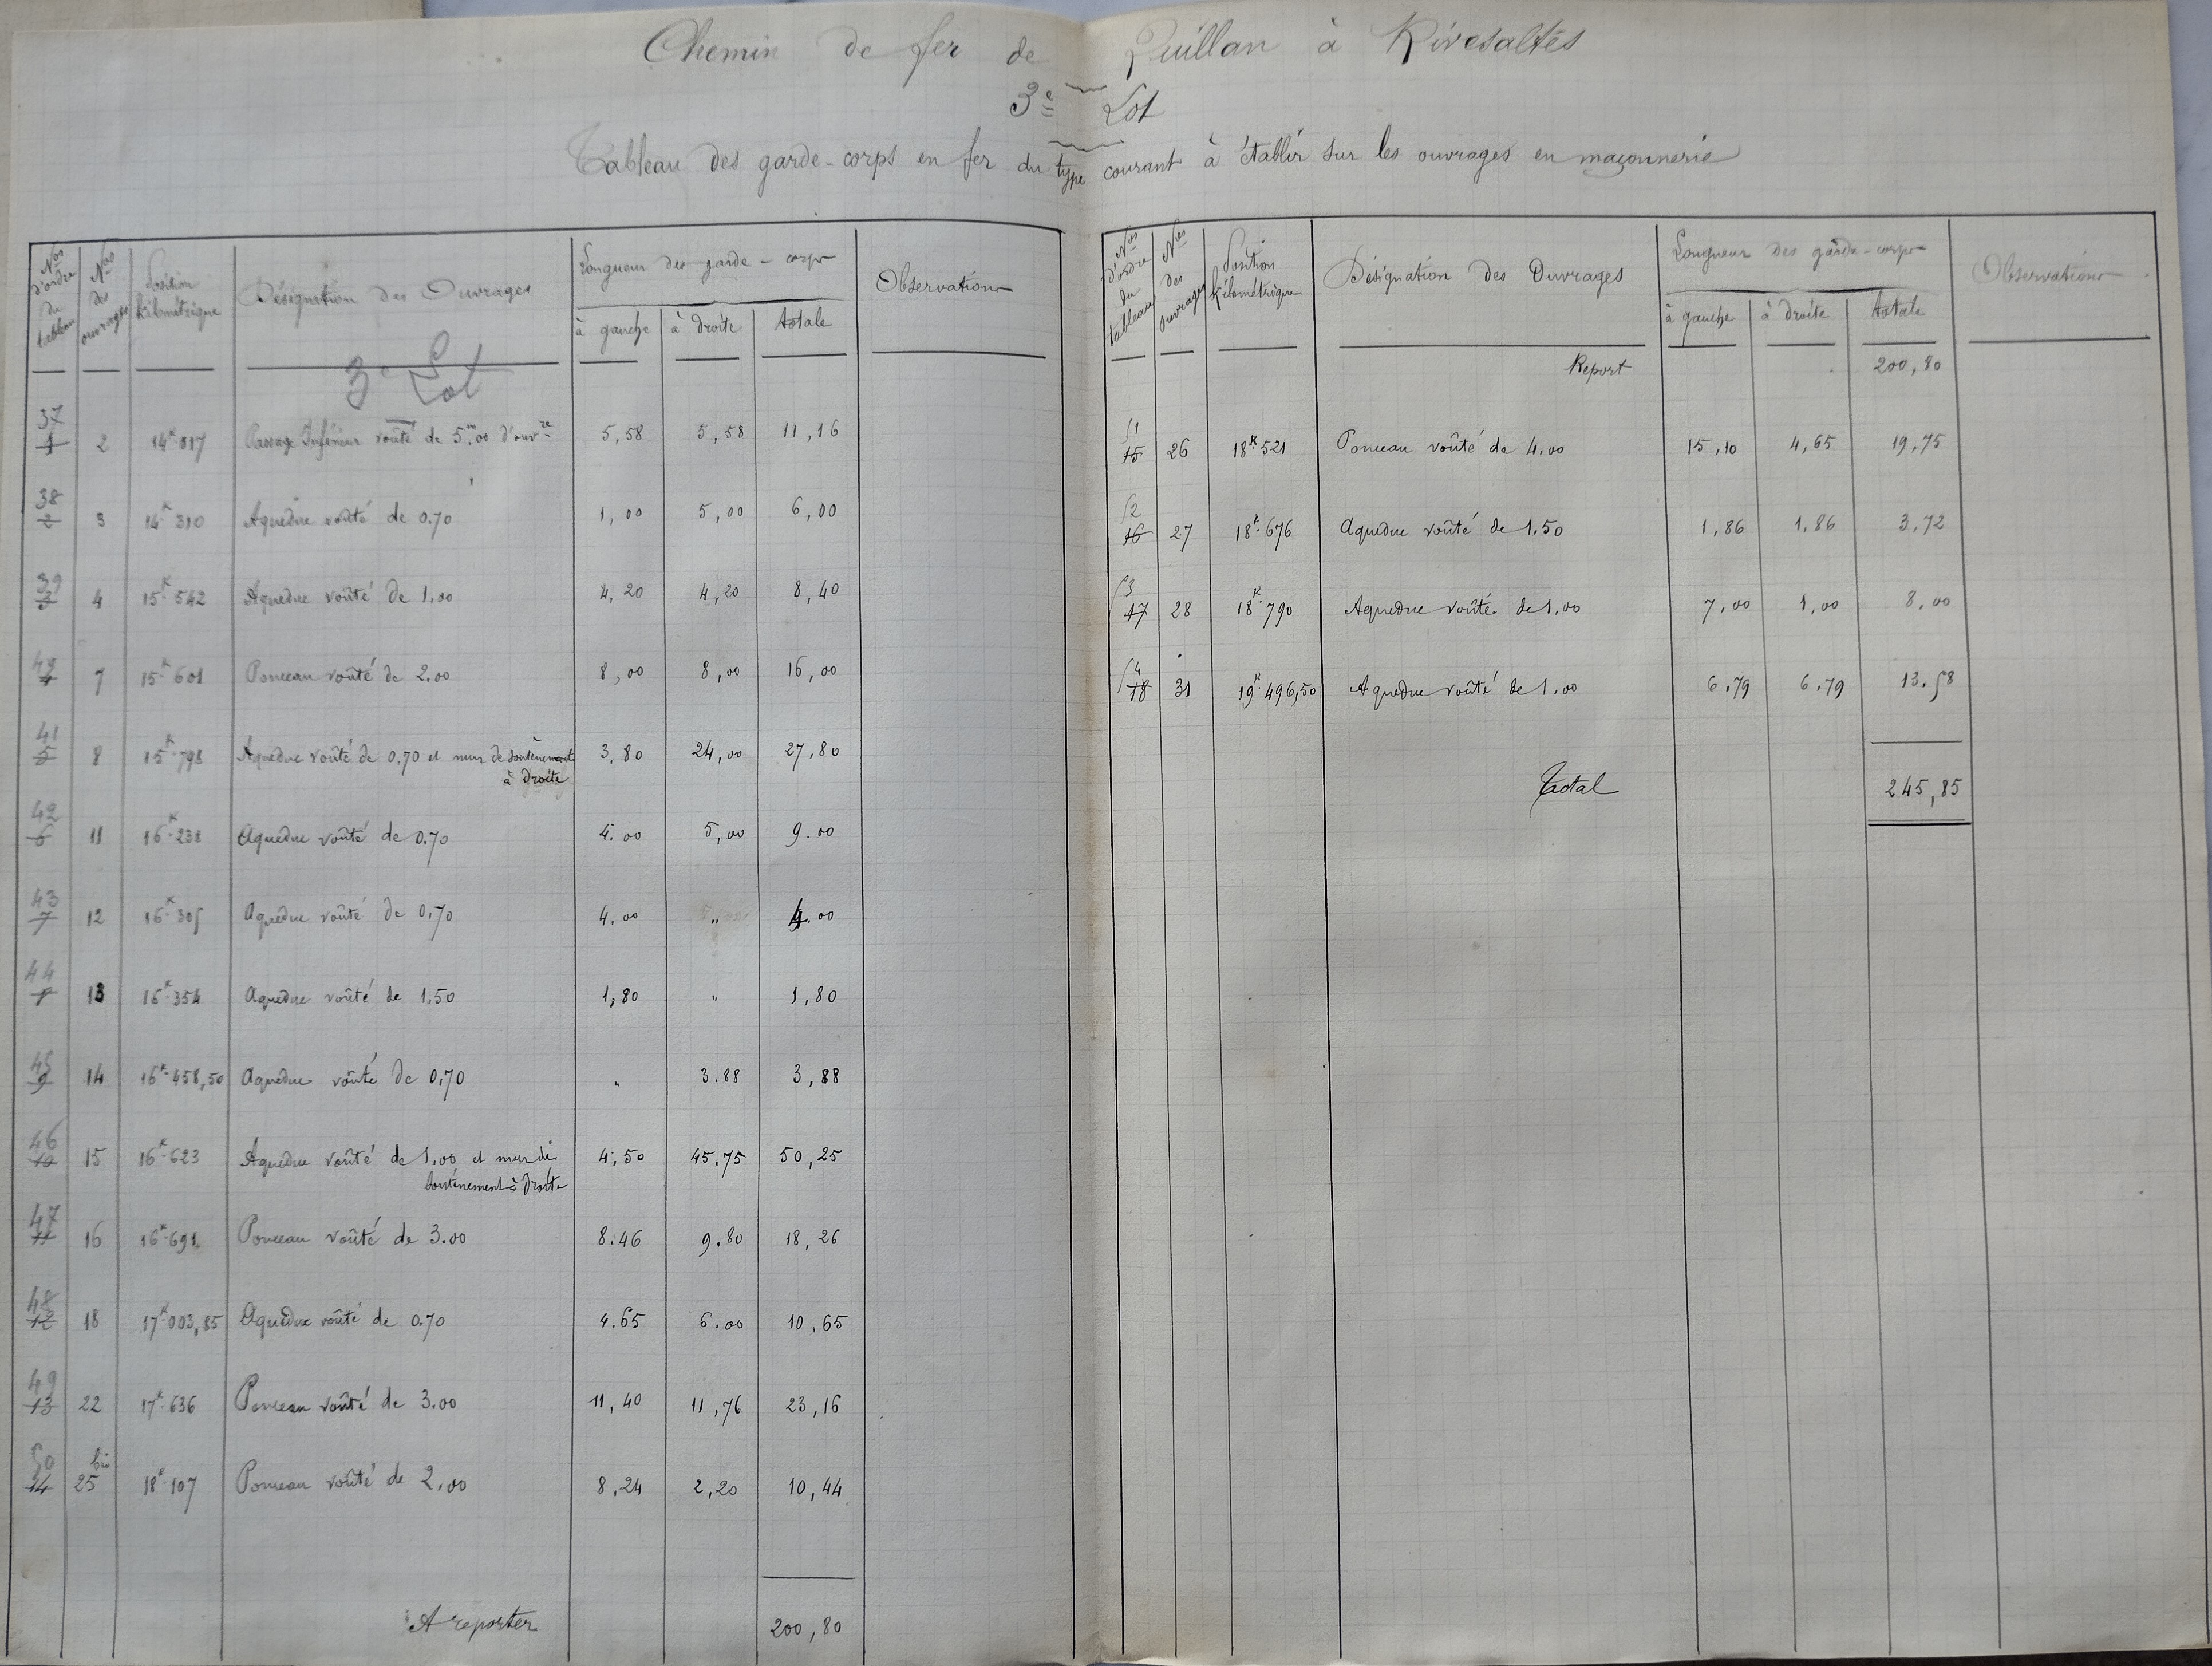 Chemin de fer de Quillan à Rivesaltes
3e Lot
Tableau des garde-corps en fer du type courant à établir sur les ouvrages en maçonnerie
Nos d'ordre du tableau | Nos des ouvrages | Position kilométrique | Désignation des Ouvrages | Longueur des garde-corps | Observations
à gauche | à droite | totale
3e Lot
37 1 | 2 | 14k.017 | Passage Inférieur voûté de 5m.00 d'ouvre | 5,58 | 5,58 | 11,16
38 2 | 3 | 14k.310 | Aqueduc voûté de 0.70 | 1,00 | 5,00 | 6,00
39 3 | 4 | 15k.542 | Aqueduc voûté de 1.00 | 4,20 | 4,20 | 8,40
40 4 | 7 | 15k.601 | Ponceau voûté de 2.00 | 8,00 | 8,00 | 16,00
41 5 | 8 | 15k.798 | Aqueduc voûté de 0,70 et mur de soutènement | 3,80 | 24,00 | 27,80
à droite
42 6 | 11 | 16k.238 | Aqueduc voûté de 0.70 | 4.00 | 5,00 | 9.00
43 7 | 12 | 16k.305 | Aqueduc voûté de 0,70 | 4.00 | " | 4.00
44 8 | 13 | 16k.354 | Aqueduc voûté de 1,50 | 1,80 | " | 1,80
45 9 | 14 | 16k.458,50 | Aqueduc voûté de 0,70 | " | 3.88 | 3,88
46 10 | 15 | 16k.623 | Aqueduc voûté de 1,00 et mur de | 4,50 | 45.75 | 50,25
soutènement à droite
47 11 | 16 | 16k.691 | Ponceau voûté de 3.00 | 8.46 | 9.80 | 18,26
48 12 | 18 | 17k.003,85 | Aqueduc voûté de 0.70 | 4.65 | 6.00 | 10,65
49 13 | 22 | 17k.636 | Ponceau voûté de 3.00 | 11,40 | 11,76 | 23,16
50 14 | 25 bis | 18k.107 | Ponceau voûté de 2,00 | 8,24 | 2,20 | 10,44
A reporter | 200,80
Nos d'ordre du tableau | Nos des ouvrages | Position kilométrique | Désignation des Ouvrages | Longueur des garde-corps | Observations
à gauche | à droite | totale
Report | 200,80
51 15 | 26 | 18k.521 | Ponceau voûté de 4.00 | 15,10 | 4,65 | 19,75
52 16 | 27 | 18k.676 | Aqueduc voûté de 1.50 | 1,86 | 1,86 | 3,72
53 17 | 28 | 18k.790 | Aqueduc voûté de 1.00 | 7,00 | 1,00 | 8,00
54 18 | 31 | 19k.496,50 | Aqueduc voûté de 1.00 | 6.79 | 6.79 | 13.58
Total | 245,85